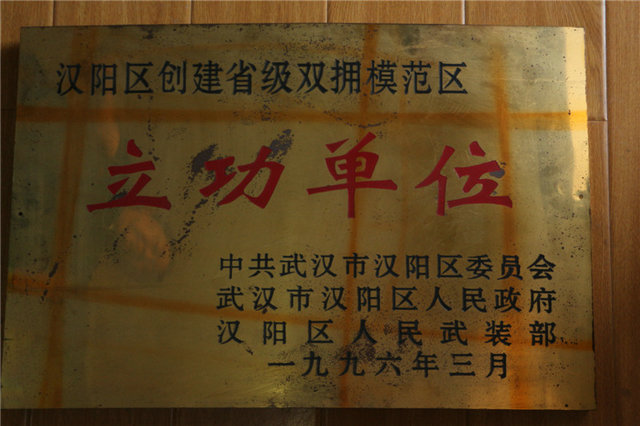 汉阳区创建省级双拥模范区
立功单位
中共武汉市汉阳区委员会
武汉市汉阳区人民政府
汉阳区人民武装部
一九九六年三月